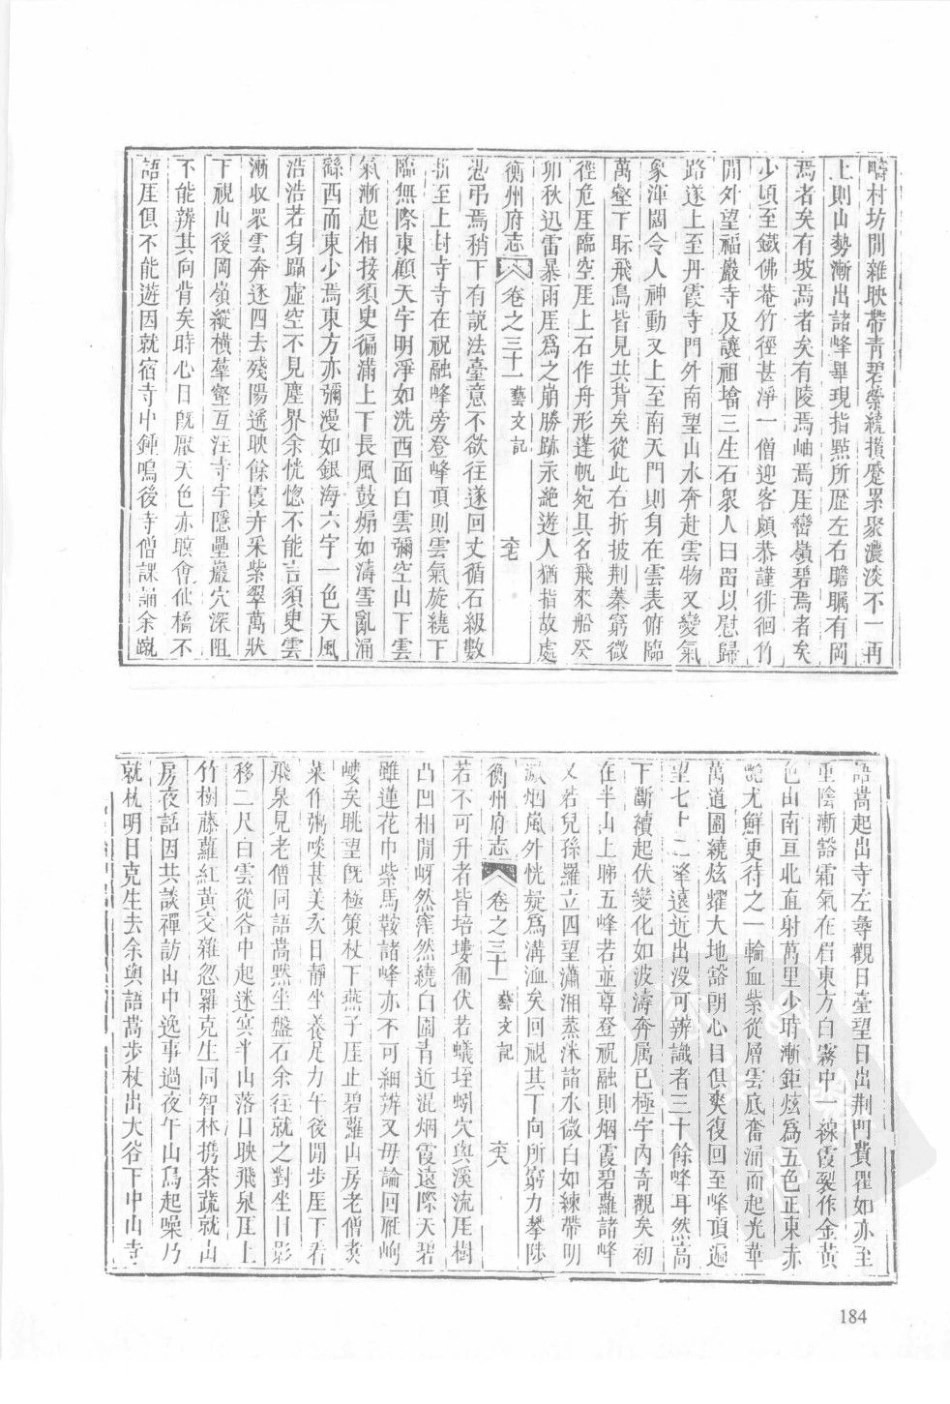 疇村坊間雜映帶青碧縈繞攢蹙累聚濃淡不一再
上則山勢漸出諸峰畢現指點所歷左右瞻矚有岡
焉者矣有坡焉者矣有陵焉岫焉厓巒嶺碧焉者矣
少頃至鐵佛菴竹徑甚淨一僧迎客顧恭謹徘徊竹
間外望福嚴寺及讓祖塔三生石衆人曰留以慰歸
路遂上至丹霞寺門外南望山水奔赴雲物又變氣
象渾闊令人神動又上至南天門則身在雲表俯臨
萬壑下眎飛鳥皆見其背矣從此右折披荆蓁窮微
徑危厓臨空厓上石作舟形蓬帆宛具名飛來船癸
卯秋迅雷暴雨厓爲之崩勝跡永絶遊人猶指故處
衡州府志 卷之三十一 藝文記
悲弔焉稍下有說法臺意不欲往遂回丈循石級數
折至上封寺寺在祝融峰旁登峰頂則雲氣旋繞下
臨無際東顧天宇明淨如洗西面白雲彌空山下雲
氣漸起相接須臾徧滿上下長風鼓煽如濤雪亂涌
繇西而東少焉東方亦彌漫如銀海六宇一色天風
浩浩若身躡虛空不見塵界余恍惚不能言須臾雲
漸收衆雲奔逐四去殘陽遙映餘霞卉采紫翠萬狀
下視山後岡嶺縱橫羣壑互注寺宇隱壘巖穴深阻
不能辨其向背矣時心目旣厭天色亦暝會仙橋不
語厓俱不能遊因就宿寺中鍾鳴後寺僧課誦余蹴
語嵩起出寺左尋觀日臺望日出荆門費瞿如亦至
重陰漸豁霜氣在眉東方白霧中一線霞裂作金黄
色由南亘北直射萬里少時漸鉅炫爲五色正東赤
艷尤鮮更待之一輪血紫從層雲底奮涌而起光華
萬道圍繞炫耀大地豁朗心目俱爽復回至峰頂遍
望七十二峰遠近出没可辨識者三十餘峰耳然高
下斷續起伏變化如波濤奔屬已極宇内奇觀矣初
在半山上聯五峰若並尊登祝融則烟霞碧蘿諸峰
又若兒孫羅立四望瀟湘蒸洣諸水微白如練帶明
滅烟嵐外恍疑爲溝洫矣回視其下向所窮力攀陟
衡州府志 卷之三十一 藝文記
若不可升者皆培塿匍伏若蟻垤蚓穴與溪流厓樹
凸凹相間岈然窪然繞白圍青近混烟霞遠際天碧
雖蓮花巾紫馬鞍諸峰亦不可細辨又毋論回雁岣
嶁矣眺望旣極策杖下燕子厓止碧蘿山房老僧煑
菜作粥啖甚美次日靜坐養足力午後閒步厓下看
飛泉見老僧同語嵩默坐盤石余往就之對坐日影
移二尺白雲從谷中起迷冥半山落日映飛泉厓上
竹樹藤蘿紅黄交雜忽羅克生同智林携茶蔬就山
房夜話因共談禪訪山中逸事過夜午山鳥起噪乃
就札明日克生去余與語嵩步杖出大谷下中山寺
184